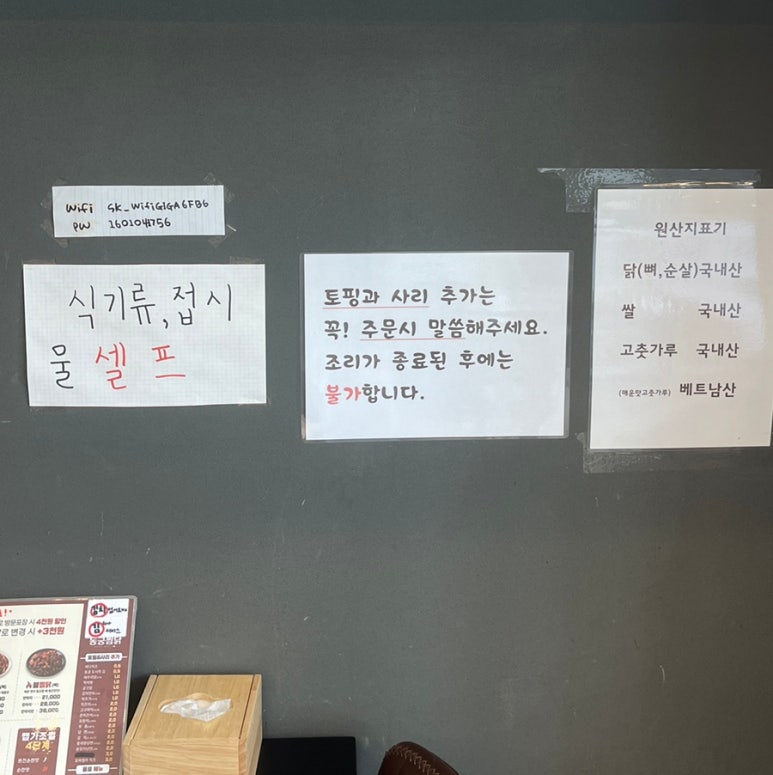 Wifi SK_WifiGIGA6FB6
PW 1601041756
식기류,접시
물 셀프
토핑과 사리 추가는
꼭! 주문시 말씀해주세요.
조리가 종료된 후에는
불가합니다.
원산지표기
닭(뼈,순살)국내산
쌀 국내산
고춧가루 국내산
(매운맛고춧가루) 베트남산
방문포장 시 4천원 할인
로 변경 시 +3천원
토핑&사리 추가
맵기조절
4단계
순한맛